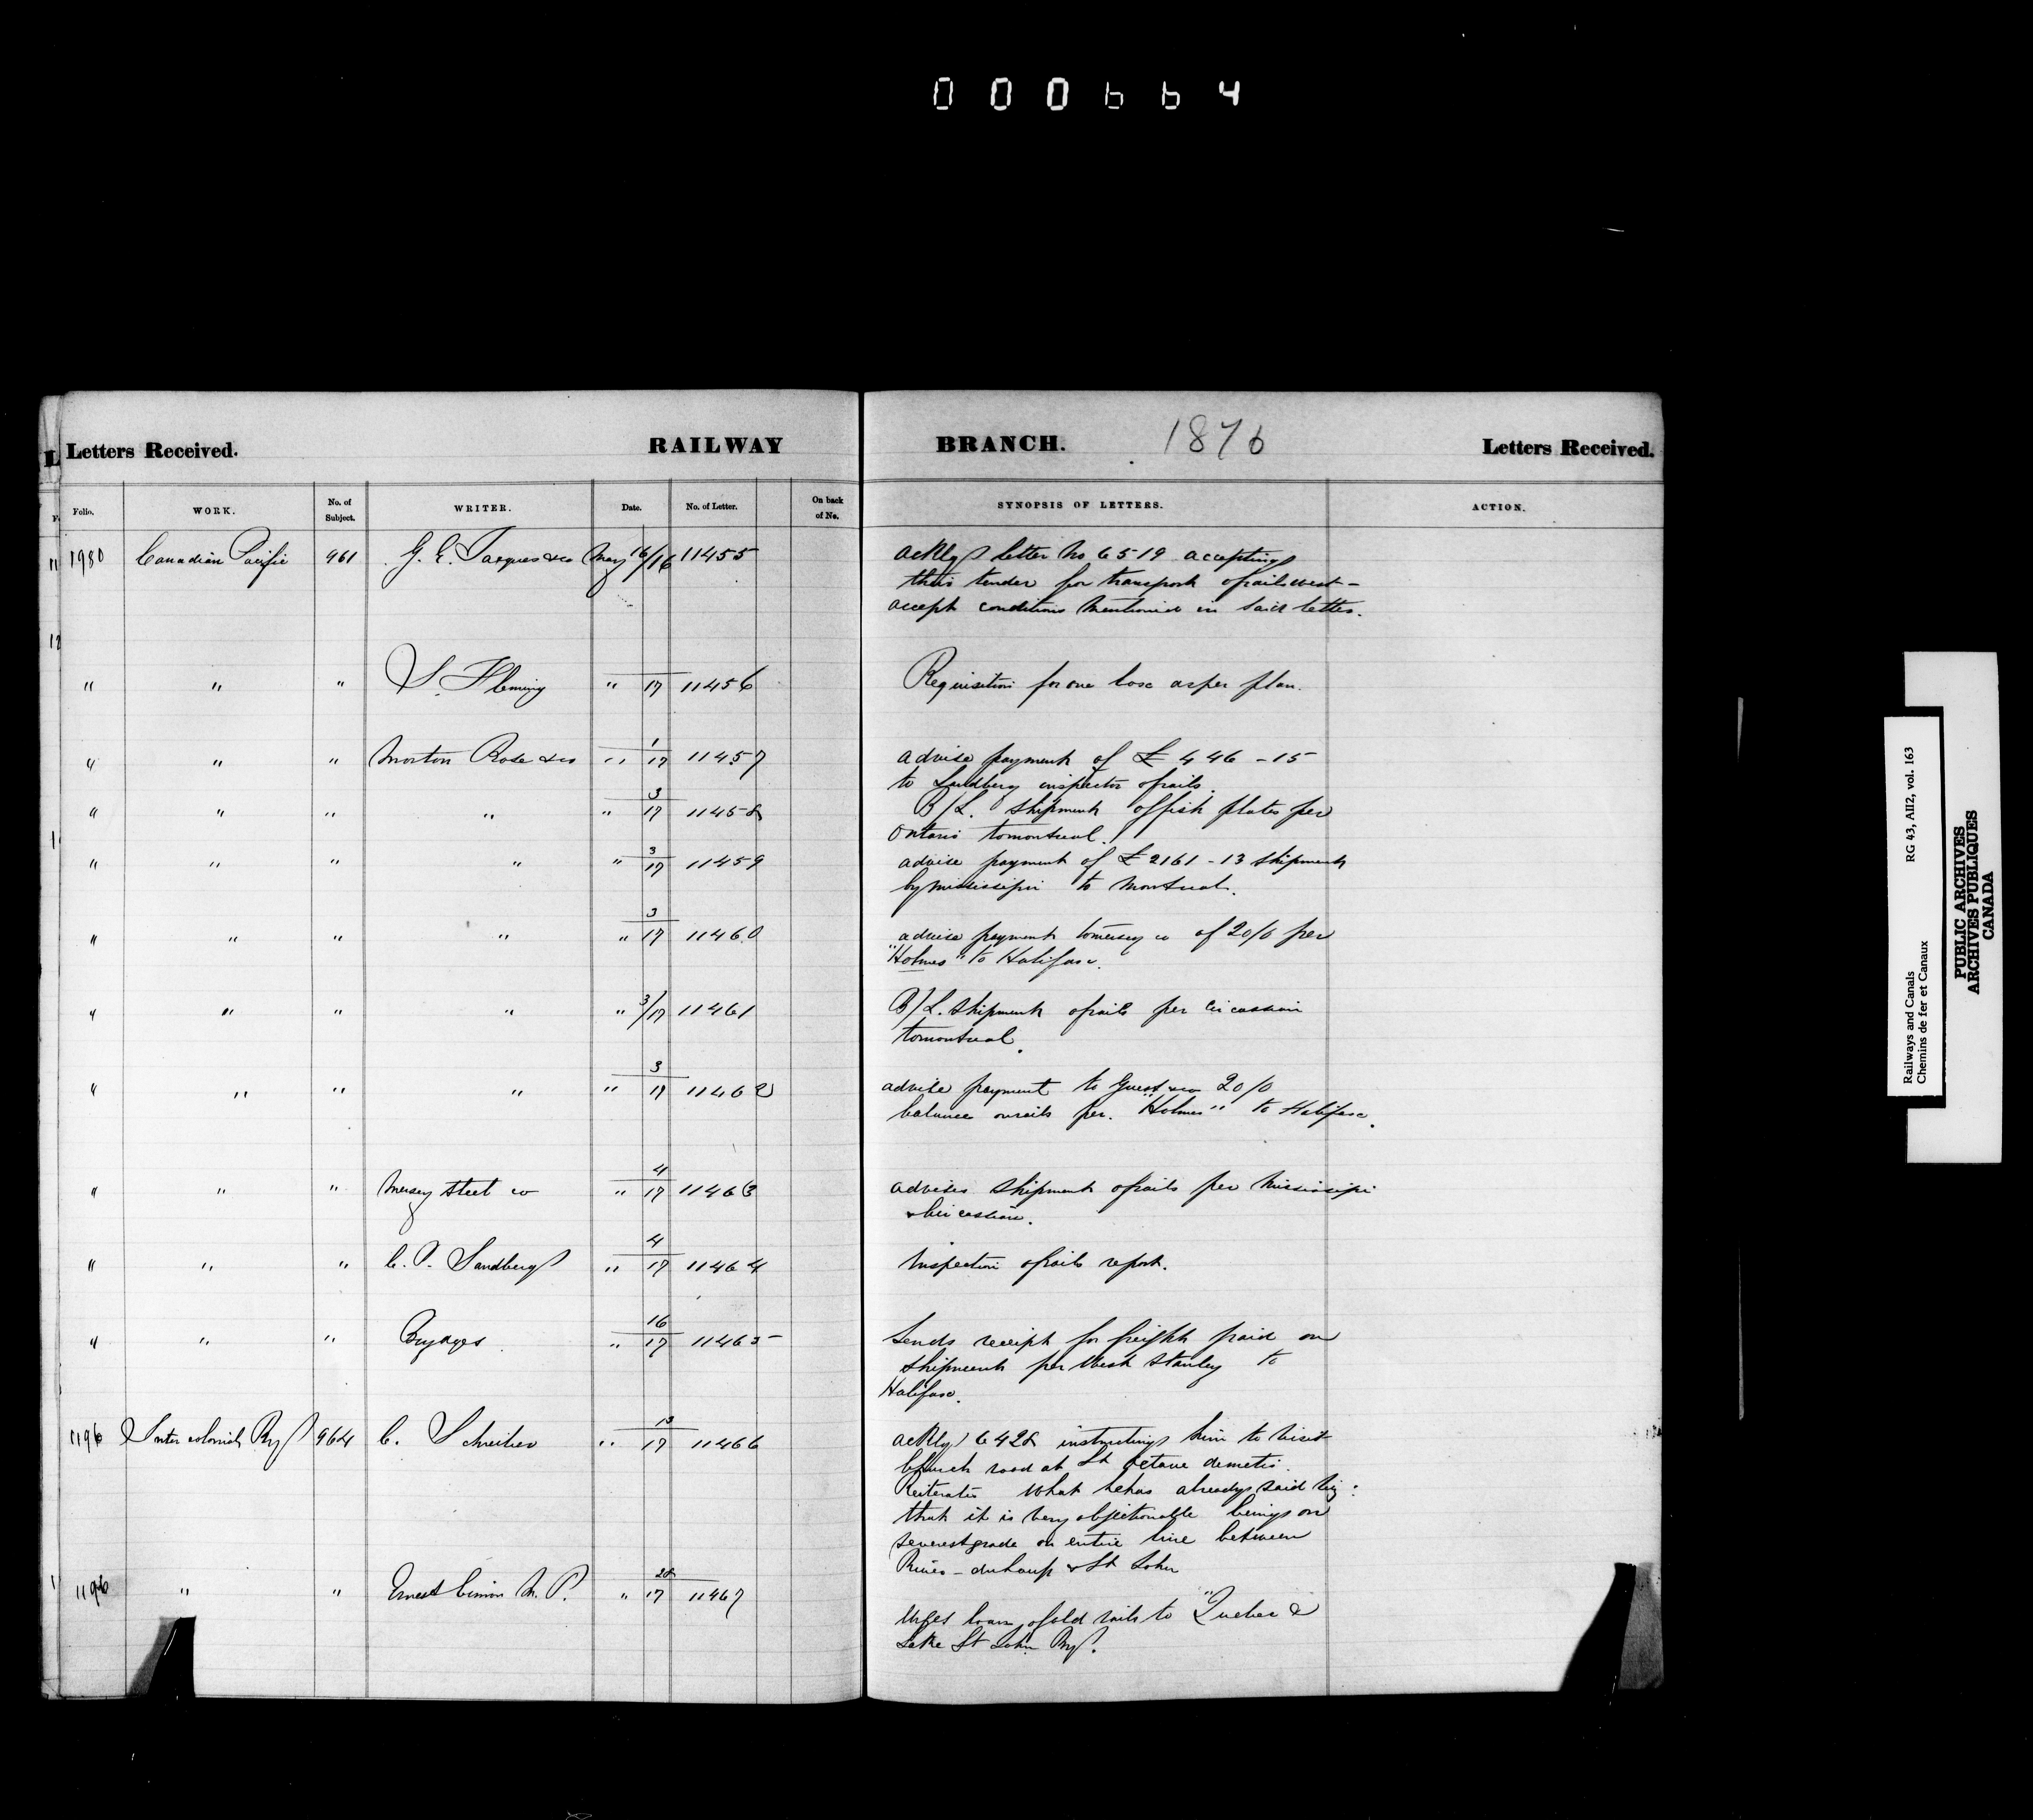 000664
Letters Received. RAILWAY BRANCH. 1876 Letters Received.
Folio. WORK. No. of Subject. WRITER. Date. No. of Letter. On back of No. SYNOPSIS OF LETTERS. ACTION.
1980 Canadian Pacific 961 G. E. Jaques & co May 16/16 11455 Ackly letter No 6519 accepting
their tender for transport of rails west -
accept conditions mentioned in said letter.
" " " S. Fleming " 17 11456 Requisition for one box as per plan.
" " " Morton Rose & co " 1/17 11457 advise payment of £446-15
to Sandberg inspector of rails.
" " " " " 3/17 11458 B/L. shipment of fish plates per
Ontario to Montreal.
" " " " " 3/17 11459 advise payment of £2161-13 shipment
by Mississipi to Montreal.
" " " " " 3/17 11460 advise payment to Mersey co of 20/0 per
"Holmes" to Halifax.
" " " " " 3/17 11461 B/L. shipment of rails per Circassian
to Montreal.
" " " " " 3/17 11462 advise payment to Guest & co 20/0
balance on rails per. "Holmes" to Halifax.
" " " Mersey Steel co " 4/17 11463 advises shipment of rails per Mississipi
& Circassian.
" " " C. P. Sandberg " 4/17 11464 Inspection of rails report.
" " " Brydges " 16/17 11465 Sends receipt for freight paid on
shipment per West Stanley to
Halifax.
1196 Inter colonial Ry 964 C. Schreiber " 13/17 11466 Ackly 6428 instructing him to visit
Church road at St Octave demetis.
Reiterates what he has already said viz:
that it is very objectionable being on
severest grade on entire line between
River-du Loup & St John
1196 " " Ernest Cimon M. P. " 28/17 11467
Urges loan of old rails to "Quebec &
Lake St John Ry.
Railways and Canals RG 43, AII2, vol. 163
Chemins de fer et Canaux
PUBLIC ARCHIVES
ARCHIVES PUBLIQUES
CANADA